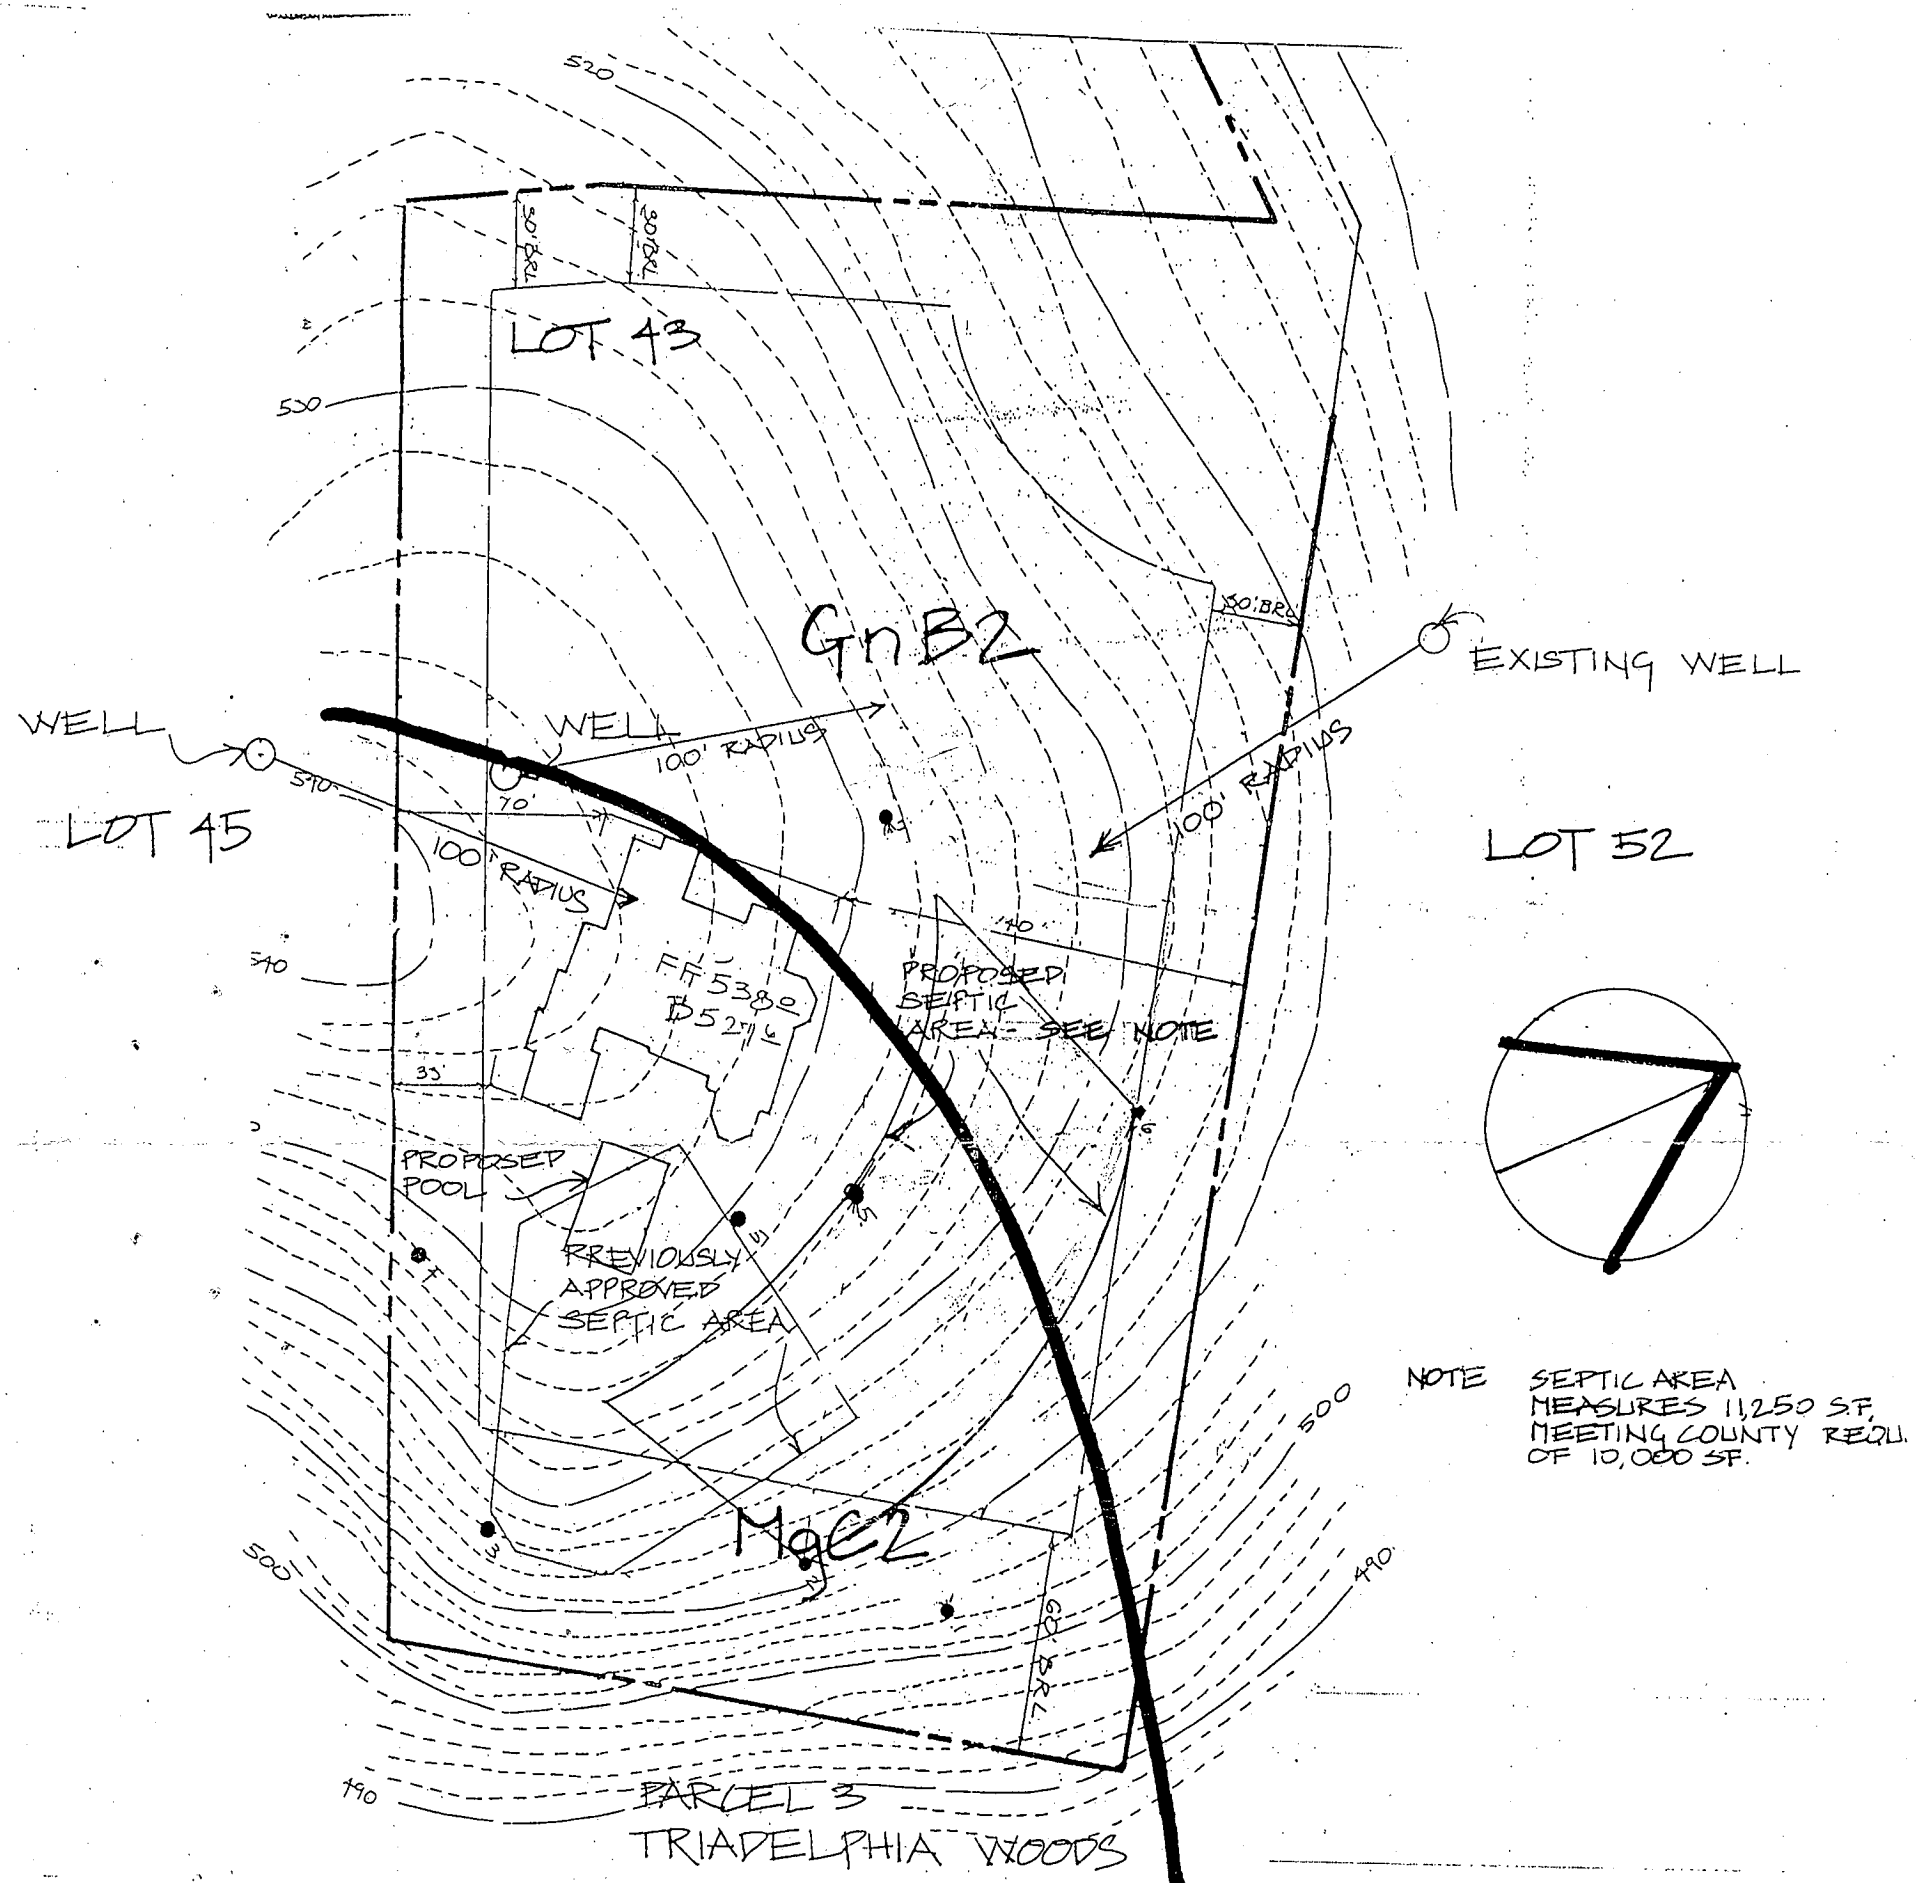 520
50' BRL
50' BRL
LOT 43
530
GnB2
50' BRL
EXISTING WELL
WELL
WELL
100' RADIUS
100' RADIUS
70'
LOT 45
100' RADIUS
LOT 52
540
FF 538.0
PROPOSED
SEPTIC
AREA - SEE NOTE
35'
6
PROPOSED
POOL
5
PREVIOUSLY
APPROVED
SEPTIC AREA
NOTE SEPTIC AREA
MEASURES 11,250 S.F.
MEETING COUNTY REQU.
OF 10,000 SF.
500
MgC2
3
2
500
490
60' BRL
490
PARCEL 3
TRIADELPHIA WOODS